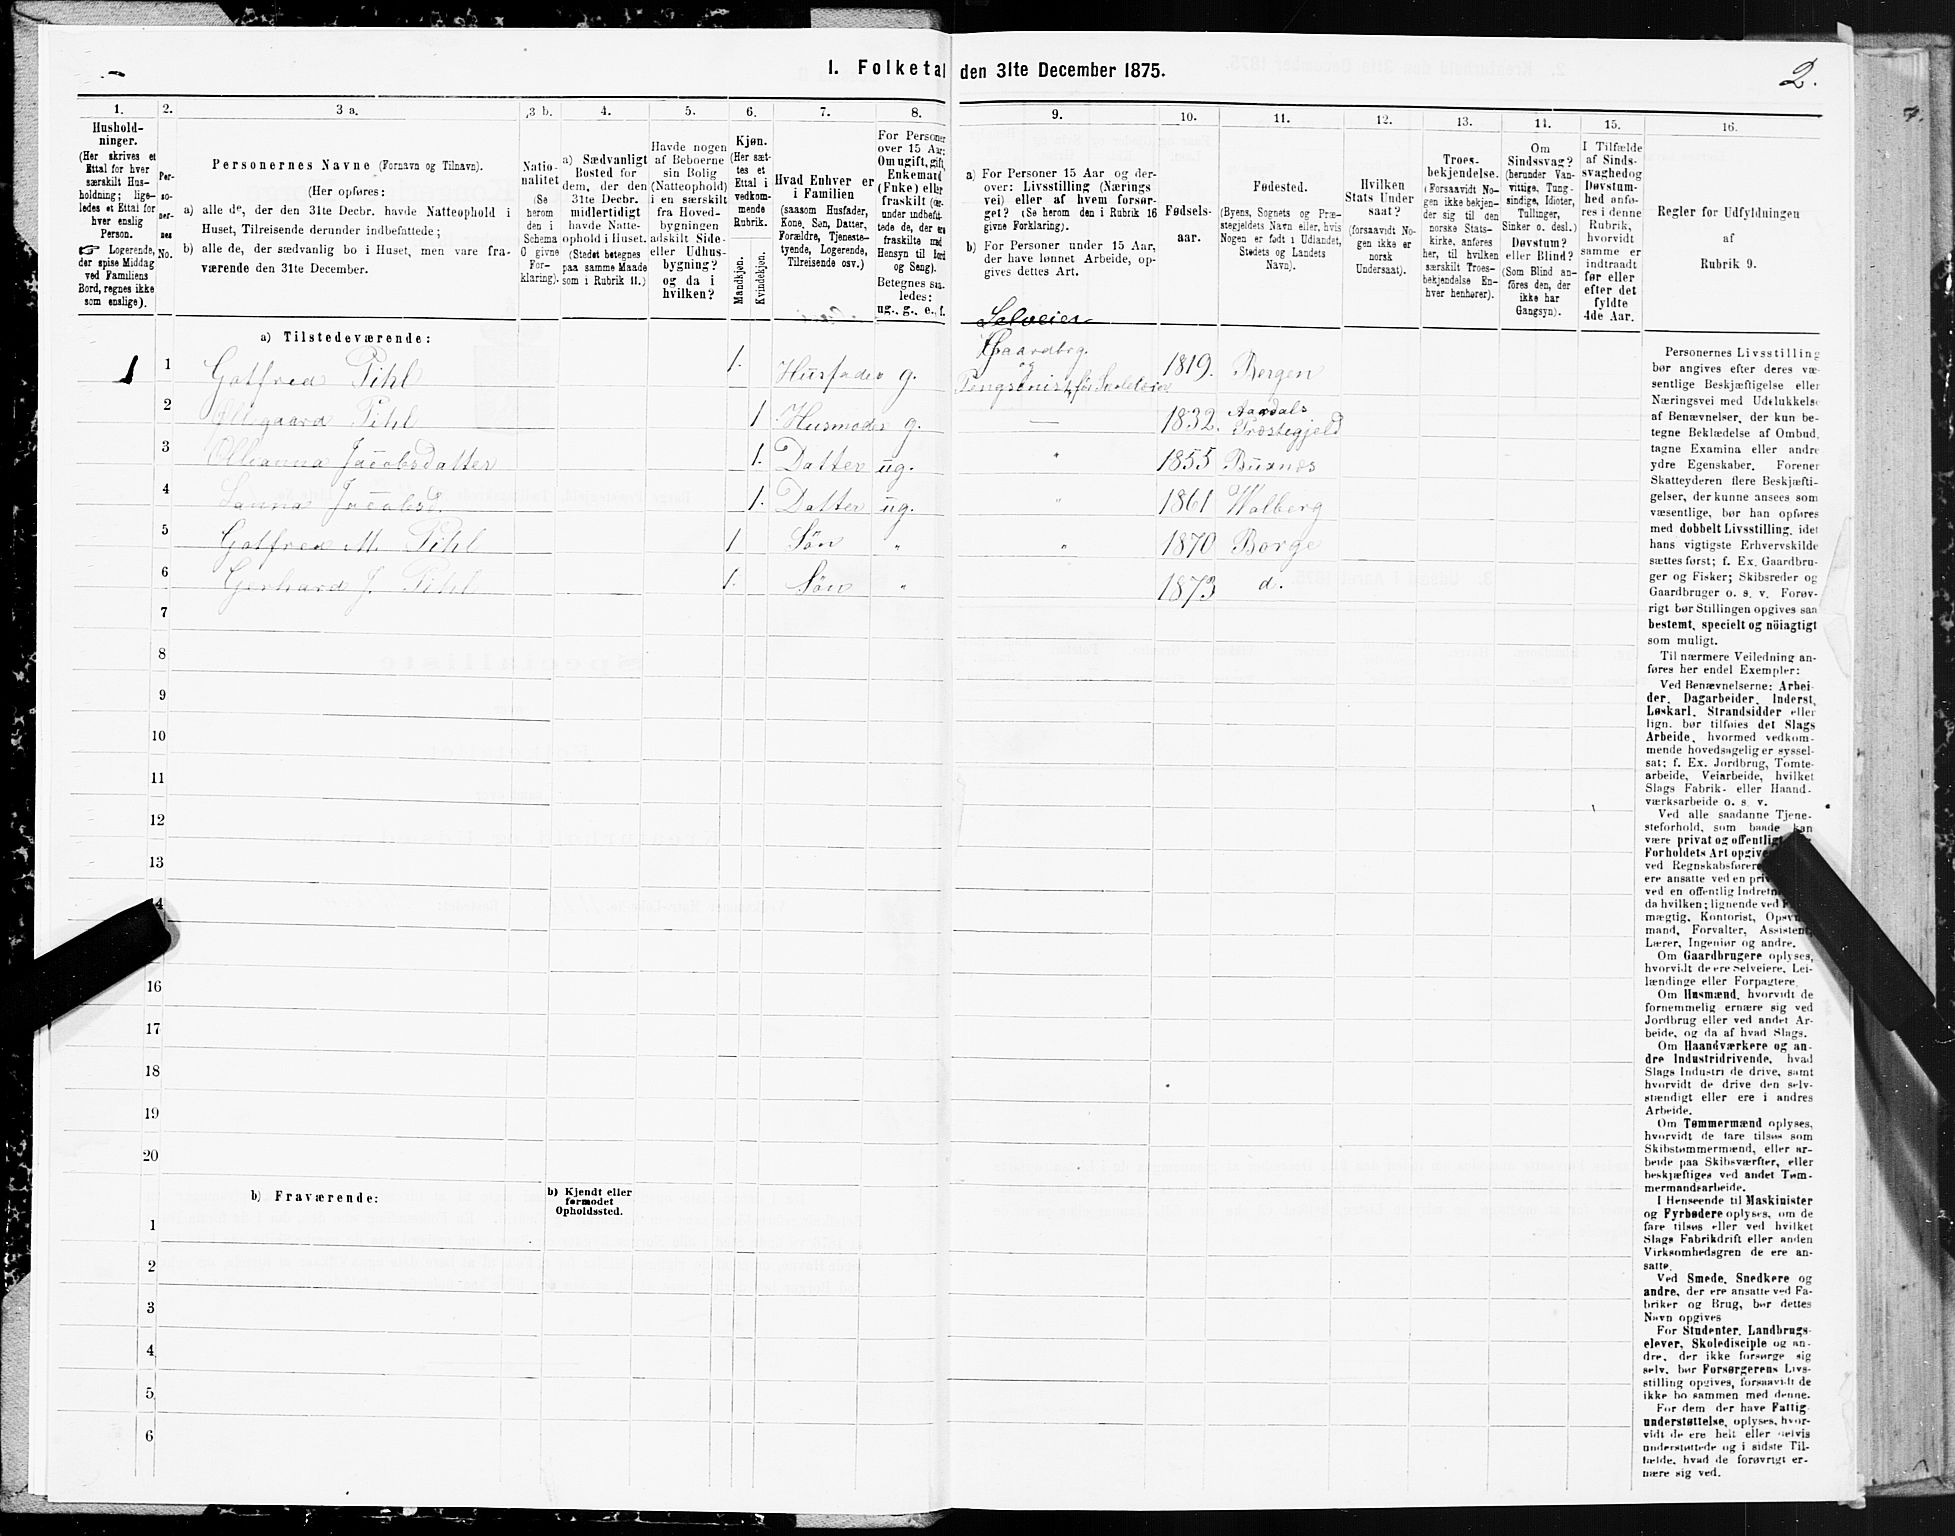 1. Folketal den 31te December 1875.
2.
1.
Hushold-
ninger.
(Her skrives et
Ettal for hver
særskilt Hus-
holdning; lige-
ledes et Ettal for
hver enslig
Person.
Logerende,
der spise Middag
ved Familiens
Bord, regnes ikke
som enslige).
2.
Per-
so-
ner-
nes
No.
3 a.
Personernes Navne (Fornavn og Tilnavn).
(Her opføres:
a) alle de, der den 31te Decbr. havde Natteophold i
Huset, Tilreisende derunder indbefattede;
b) alle de, der sædvanlig bo i Huset, men vare fra-
værende den 31te December.
3 b.
Natio-
nalitet
(Se
herom
den i
Schema
O givne
For-
klaring).
4.
a) Sædvanligt
Bosted for
dem, der den
31te Decbr.
midlertidigt
havde Natte-
ophold i Huset.
(Stedet betegnes
paa samme Maade
som i Rubrik 11.)
5.
Havde nogen
af Beboerne
sin Bolig
(Natteophold)
i en særskilt
fra Hoved-
bygningen
adskilt Side-
eller Udhus-
bygning?
og da i
hvilken?
6.
Kjøn.
(Her sæt-
tes et
Ettal i
vedkom-
mende
Rubrik.
Mandkjøn.
Kvindekjøn.
7.
Hvad Enhver er
i Familien
(saasom Husfader,
Kone, Søn, Datter,
Forældre, Tjeneste-
tyende, Logerende,
Tilreisende osv.)
8.
For Personer
over 15 Aar:
Om ugift, gift,
Enkemand
(Enke) eller
fraskilt (der-
under indbefat-
tede de, der ere
fraskilte med
Hensyn til Bord
og Seng).
Betegnes saa-
ledes:
ug., g., e., f.
9.
a) For Personer 15 Aar og der-
over: Livsstilling (Nærings-
vei) eller af hvem forsør-
get? (Se herom den i Rubrik 16
givne Forklaring).
b) For Personer under 15 Aar,
der have lønnet Arbeide, op-
gives dettes Art.
10.
Fødsels-
aar.
11.
Fødested.
(Byens, Sognets og Præ-
stegjeldets Navn eller, hvis
Nogen er født i Udlandet,
Stedets og Landets
Navn).
12.
Hvilken
Stats Under
saat?
(forsaavidt No-
gen ikke er
norsk
Undersaat).
13.
Troes-
bekjendelse.
(Forsaavidt No-
gen ikke bekjen-
der sig til den
norske Stats-
kirke, anføres
her, til hvilken
særskilt Troes-
bekjendelse En-
hver henhører).
14.
Om
Sindssvag?
(herunder Van-
vittige, Tung-
sindige, Idioter,
Tullinger,
Sinker o. desl.)
Døvstum?
eller Blind?
(Som Blind an-
føres den, der
ikke har
Gangsyn).
15.
I Tilfælde
af Sinds-
svaghed og
Døvstum-
hed anfø-
res i denne
Rubrik,
hvorvidt
samme er
indtraadt
før eller
efter det
fyldte
4de Aar.
16.
Regler for Udfyldningen
af
Rubrik 9.
a) Tilstedeværende:
Selveier
Gaardbrg.
og
1 1 Gotfred Pihl 1. Husfader g. Pengsonist, før Skoleleier 1819. Bergen
2 Ollegaard Pihl 1 Husmoder g. — 1832. Aardals Præstegjeld
3 Ollianna Jacobsdatter 1. Datter ug. " 1855 Buxnæs
4 Sanna Jacobsd. 1. Datter ug. " 1861 Walberg
5 Gotfred M. Pihl 1 Søn " " 1870 Borge
6 Gerhard J. Pihl 1. Søn " 1873 d.
7
8
9
10
11
12
13
4
16
17
18
19
20
b) Fraværende:
b) Kjendt eller
formodet
Opholdssted.
1
2
3
4
5
6
Personernes Livsstilling
bør angives efter deres væ-
sentlige Beskjæftigelse eller
Næringsvei med Udelukkelse
af Benævnelser, der kun be-
tegne Beklædelse af Ombud,
tagne Examina eller andre
ydre Egenskaber. Forener
Skatteyderen flere Beskjæfti-
gelser, der kunne ansees som
væsentlige, bør han opføres
med dobbelt Livsstilling, idet
hans vigtigste Erhvervskilde
sættes først; f. Ex. Gaardbru-
ger og Fisker; Skibsreder og
Gaardbruger o. s. v. Forøv-
rigt bør Stillingen opgives saa
bestemt, specielt og nöiagtigt
som muligt.
Til nærmere Veiledning an-
føres her endel Exempler:
Ved Benævnelserne: Arbei-
der, Dagarbeider, Inderst,
Løskarl, Strandsidder eller
lign. bør tilføies det Slags
Arbeide, hvormed vedkom-
mende hovedsagelig er syssel-
sat; f. Ex. Jordbrug, Tomte-
arbeide, Veiarbeide, hvilket
Slags Fabrik- eller Haand-
værksarbeide o. s. v.
Ved alle saadanne Tjene-
steforhold, som baade kan
være privat og offentligt,
Forholdets Art opgives,
ved Regnskabsførere,
ere ansatte ved en priv
ved en offentlig Indretn
da hvilken; lignende ved F
mægtig, Kontorist, Opsyns-
mand, Forvalter, Assistent,
Lærer, Ingeniør og andre.
Om Gaardbrugere oplyses,
hvorvidt de ere Selveiere, Lei-
lændinge eller Forpagtere.
Om Husmænd, hvorvidt de
fornemmelig ernære sig ved
Jordbrug eller ved andet Ar-
beide, og da af hvad Slags.
Om Haandværkere og an-
dre Industridrivende, hvad
Slags Industri de drive, samt
hvorvidt de drive den selv-
stændigt eller ere i andres
Arbeide.
Om Tømmermænd oplyses,
hvorvidt de fare tilsøs som
Skibstømmermænd, eller ar-
beide paa Skibsværfter, eller
beskjæftiges ved andet Tøm-
mermandsarbeide.
I Henseende til Maskinister
og Fyrbødere oplyses, om de
fare tilsøs eller ved hvilket
Slags Fabrikdrift eller anden
Virksomhedsgren de ere an-
satte.
Ved Smede, Snedkere og
andre, der ere ansatte ved Fa-
briker og Brug, bør dettes
Navn opgives
For Studenter, Landbrugs-
elever, Skoledisciple og an-
dre, der ikke forsørge sig
selv, bør Forsørgerens Livs-
stilling opgives, forsaavidt de
ikke bo sammen med denne.
For dem der have Fattig-
understøttelse, oplyses, hvor-
vidt de ere helt eller delvis
understøttede og i sidste Til-
fælde, hvad de forøvrigt er-
nære sig ved.